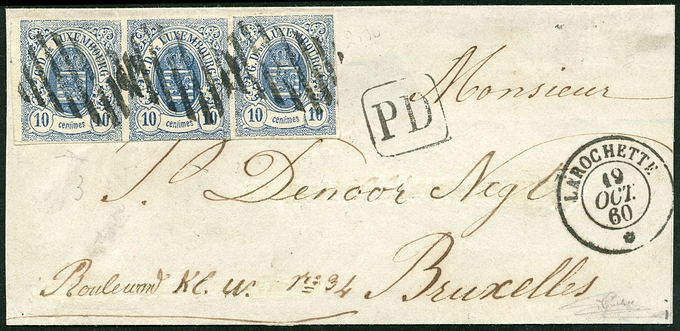 G.D. DE LUXEMBOURG G.D. DE LUXEMBOURG G.D. DE LUXEMBOURG
10 centimes 10 10 centimes 10 10 centimes 10
Monsieur
PD
LAROCHETTE
19
OCT.
60
Denoor Negt
No 34
Bruxelles